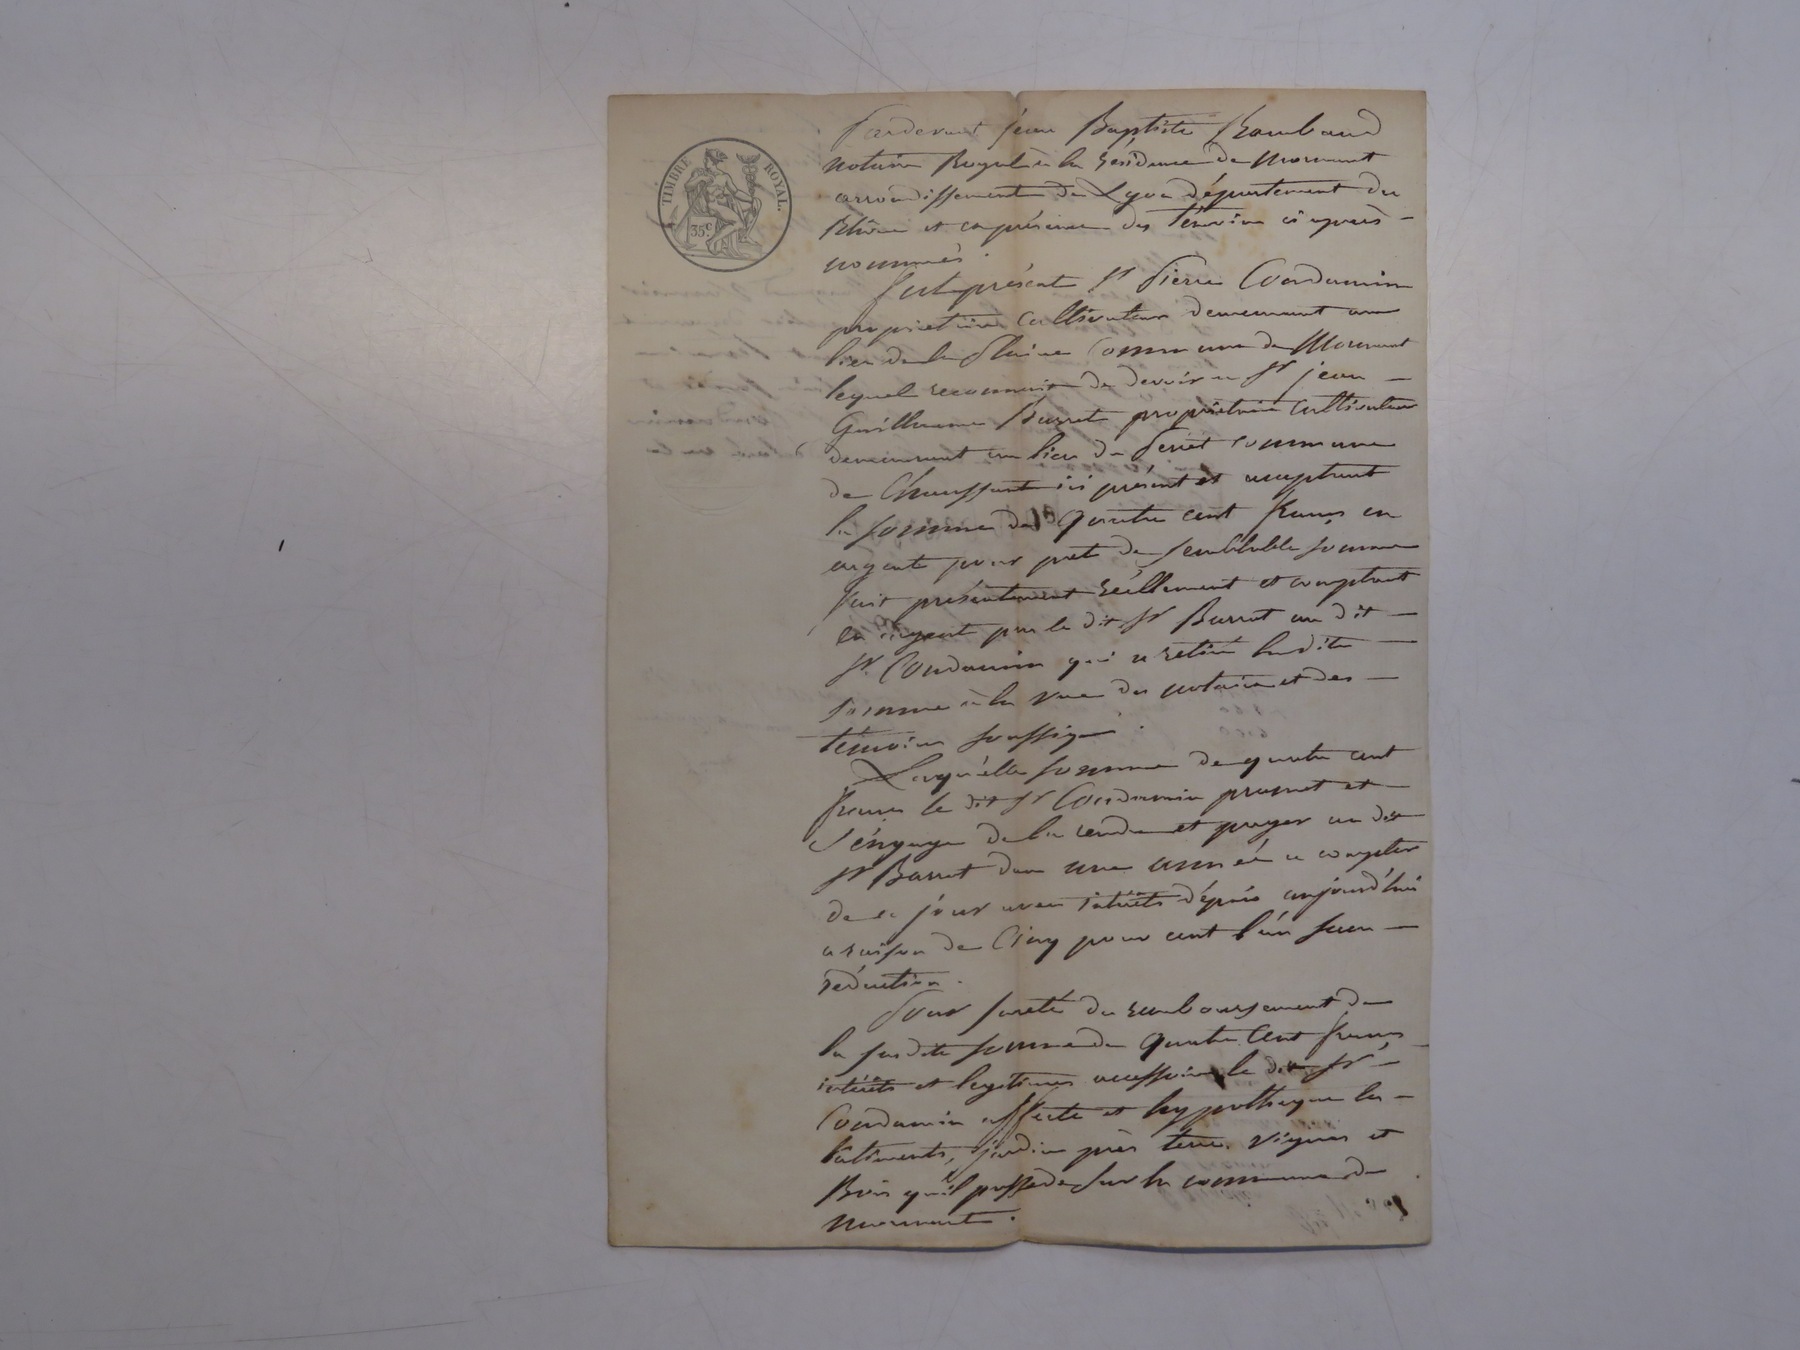 TIMBRE ROYAL.
35.c
Pardevant jean Baptiste Rambaud
notaire Royal à la résidence de Mornant
arrondissement de Lyon département du
Rhône et en présence des témoins ci après
nommés
Fut présent Sr Pierre Condamin
propriétaire cultivateur demeurant au
lieu de la Plaine commune de Mornant
lequel reconnait de devoir a Sr jean
Guillaume Barret propriétaire cultivateur
demeurant au lieu du commune
de Chaussant ici présent et acceptant
la somme de quatre cent francs en
argent pour prêt de semblable somme
fait présentement réellement et comptant
en argent par le dit Sr Barret au dit
Sr Condamin qui a retiré ladite
somme à la vue du notaire et des
témoins soussigné
Laquelle somme de quatre cent
francs le dit Sr Condamin promet et
s'éngage de la rendre et payer au dit
Sr Barret dans une année a compter
de ce jour avec intérêts dépuis aujourd'hui
a raison de Cinq pour cent l'an sans
réduction.
Pour sureté du remboursement de
la susdite somme de quatre cent francs
intérêts et legitimes accessoires le dit Sr
Condamin affecte et hypothèque les
bâtiments, jardin près terre vignes et
Bois qu'il possède sur la commune de
Mornant.